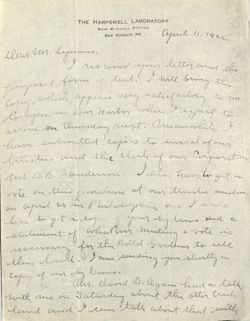 THE HARPSWELL LABORATORY
WEIR MITCHELL STATION
BAR HARBOR, ME.
April 11, 192
Dear Mr.
I received your letter and the
proposed form of deed. I will bring the
copy which appears very satisfactory to me
to you in Bar Harbor where I expect to
arrive on Thursday next. Meanwhile I
have submitted copies to several of our
trustees and the Clerk of our Corporation
Mr. D.B. I have to get a
vote on this purchase at our trustee meeting
on April 22 in Philadelphia and I would
like to get a copy of your by laws and a
statement of what a vote is
necessary for the Wild Gardens to sell
this land. I am sending you shortly a
copy of our by laws.
Mr. David B. had a talk
with me on Saturday about the other
land and I can talk about that with